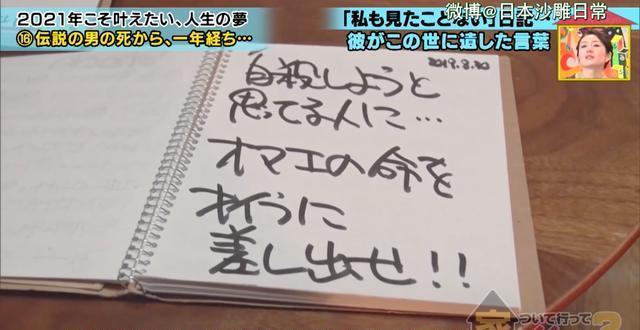 2021年こそ叶えたい、人生の夢
⑯伝説の男の死から、一年経ち…
「私も見たことない日記」
彼がこの世に遺した言葉
微博@日本沙雕日常
2019.8.20
自殺しようと
思ってる人に…
オマエの命を
オイラに
差し出せ!!
家ついて行って